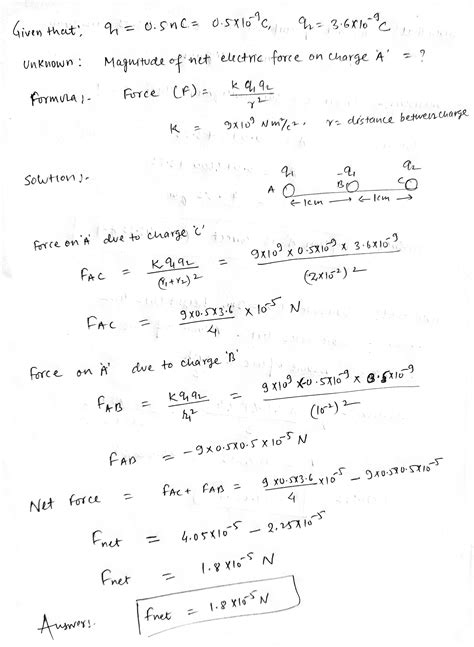 Given that; q1 = 0.5nC = 0.5x10^-9 C, q2 = 3.6x10^-9 C
Unknown: Magnitude of net electric force on charge 'A' = ?
Formula;- Force (F) = K q1 q2 / r^2
K = 9x10^9 Nm^2/c^2. r = distance between charge
Solution;-
q1 -q1 q2
A B C
← 1cm → ← 1cm →
Force on 'A' due to charge 'C'
FAC = K q1 q2 / (r1+r2)^2 = 9x10^9 x 0.5x10^-9 x 3.6x10^-9 / (2x10^-2)^2
FAC = 9x0.5x3.6 / 4 x 10^-5 N
Force on 'A' due to charge 'B'
FAB = K q1 q2 / r1^2 = 9x10^9 x -0.5x10^-9 x 0.5x10^-9 / (10^-2)^2
FAB = -9x0.5x0.5x10^-5 N
Net Force = FAC + FAB = 9x0.5x3.6 / 4 x10^-5 - 9x0.5x0.5x10^-5
Fnet = 4.05x10^-5 - 2.25x10^-5
Fnet = 1.8x10^-5 N
Answer:. Fnet = 1.8x10^-5 N